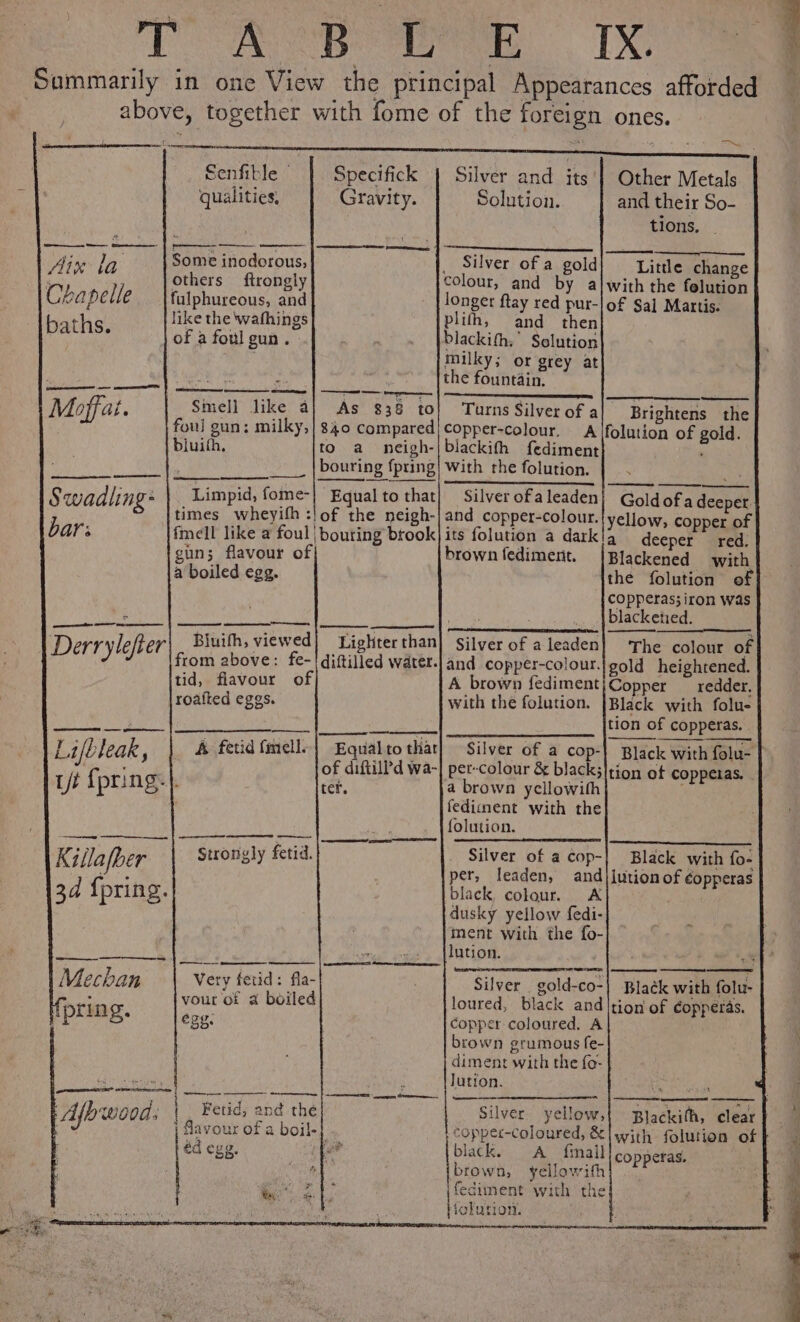 TABLE IX.
Summarily in one View the principal Appearances afforded
above, together with ſome of the foreign ones.
Senſible
qualities,
Specifick
Gravity.
Silver and its
Solution.
Other Metals
and their So-
tions.
Aix la
Chapelle
baths.
Some inodorous,
others ſtrongly
ſulphureous, and
like the waſhings
of a foul gun.
Silver of a gold
colour, and by a
longer ſtay red pur-
pliſh, and then
blackiſh. Solution
milky; or grey at
the fountain.
Little change
with the ſolution
of Sal Martis.
Moffat.
Smell like a
foul gun: milky,
bluiſh.
As 838 to
840 compared
to a neigh-
bouring ſpring
Turns Silver of a
copper-colour. A
blackiſh ſediment
with the ſolution.
Brightens the
ſolution of gold.
Swadling-
bar:
Limpid, ſome-
times wheyiſh:
ſmell like a foul
gun; flavour of
a boiled egg.
Equal to that
of the neigh-
bouring brook
Silver of a leaden
and copper-colour.
its ſolution a dark
brown ſediment.
Gold of a deeper
yellow, copper of
a deeper red.
Blackened with
the ſolution of
copperas; iron was
blackened.
Derryleſter
Bluiſh, viewed
from above: fe-
tid, flavour of
roaſted eggs.
Lighter than
diſtilled water.
Silver of a leaden
and copper-colour.
A brown ſediment
with the ſolution.
The colour of
gold heightened.
Copper redder.
Black with ſolu-
tion of copperas.
Liſbleak,
1ſt ſpring.
A fetid ſmell.
Equal to that
of diſtill'd wa-
ter.
Silver of a cop-
per-colour & black;
a brown yellowiſh
ſediment with the
ſolution.
Black with ſolu-
tion of copperas.
Killaſher
3d ſpring.
Strongly fetid.
Silver of a cop-
per, leaden, and
black colour. A
dusky yellow ſedi-
ment with the ſo-
lution.
Black with ſo-
lution of copperas
Mechan
ſpring.
Very fetid: fla-
vour of a boiled
egg.
Silver gold-co-
loured, black and
copper coloured. A
brown grumous ſe-
diment with the ſo-
lution.
Black with ſolu-
tion of copperas.
Aſhwood.
Fetid, and the
flavour of a boil-
ed egg.
Silver yellow,
copper-coloured, &
black. A ſmall
brown, yellowiſh
ſediment with the
ſolution.
Blackiſh, clear
with ſolution of
copperas.